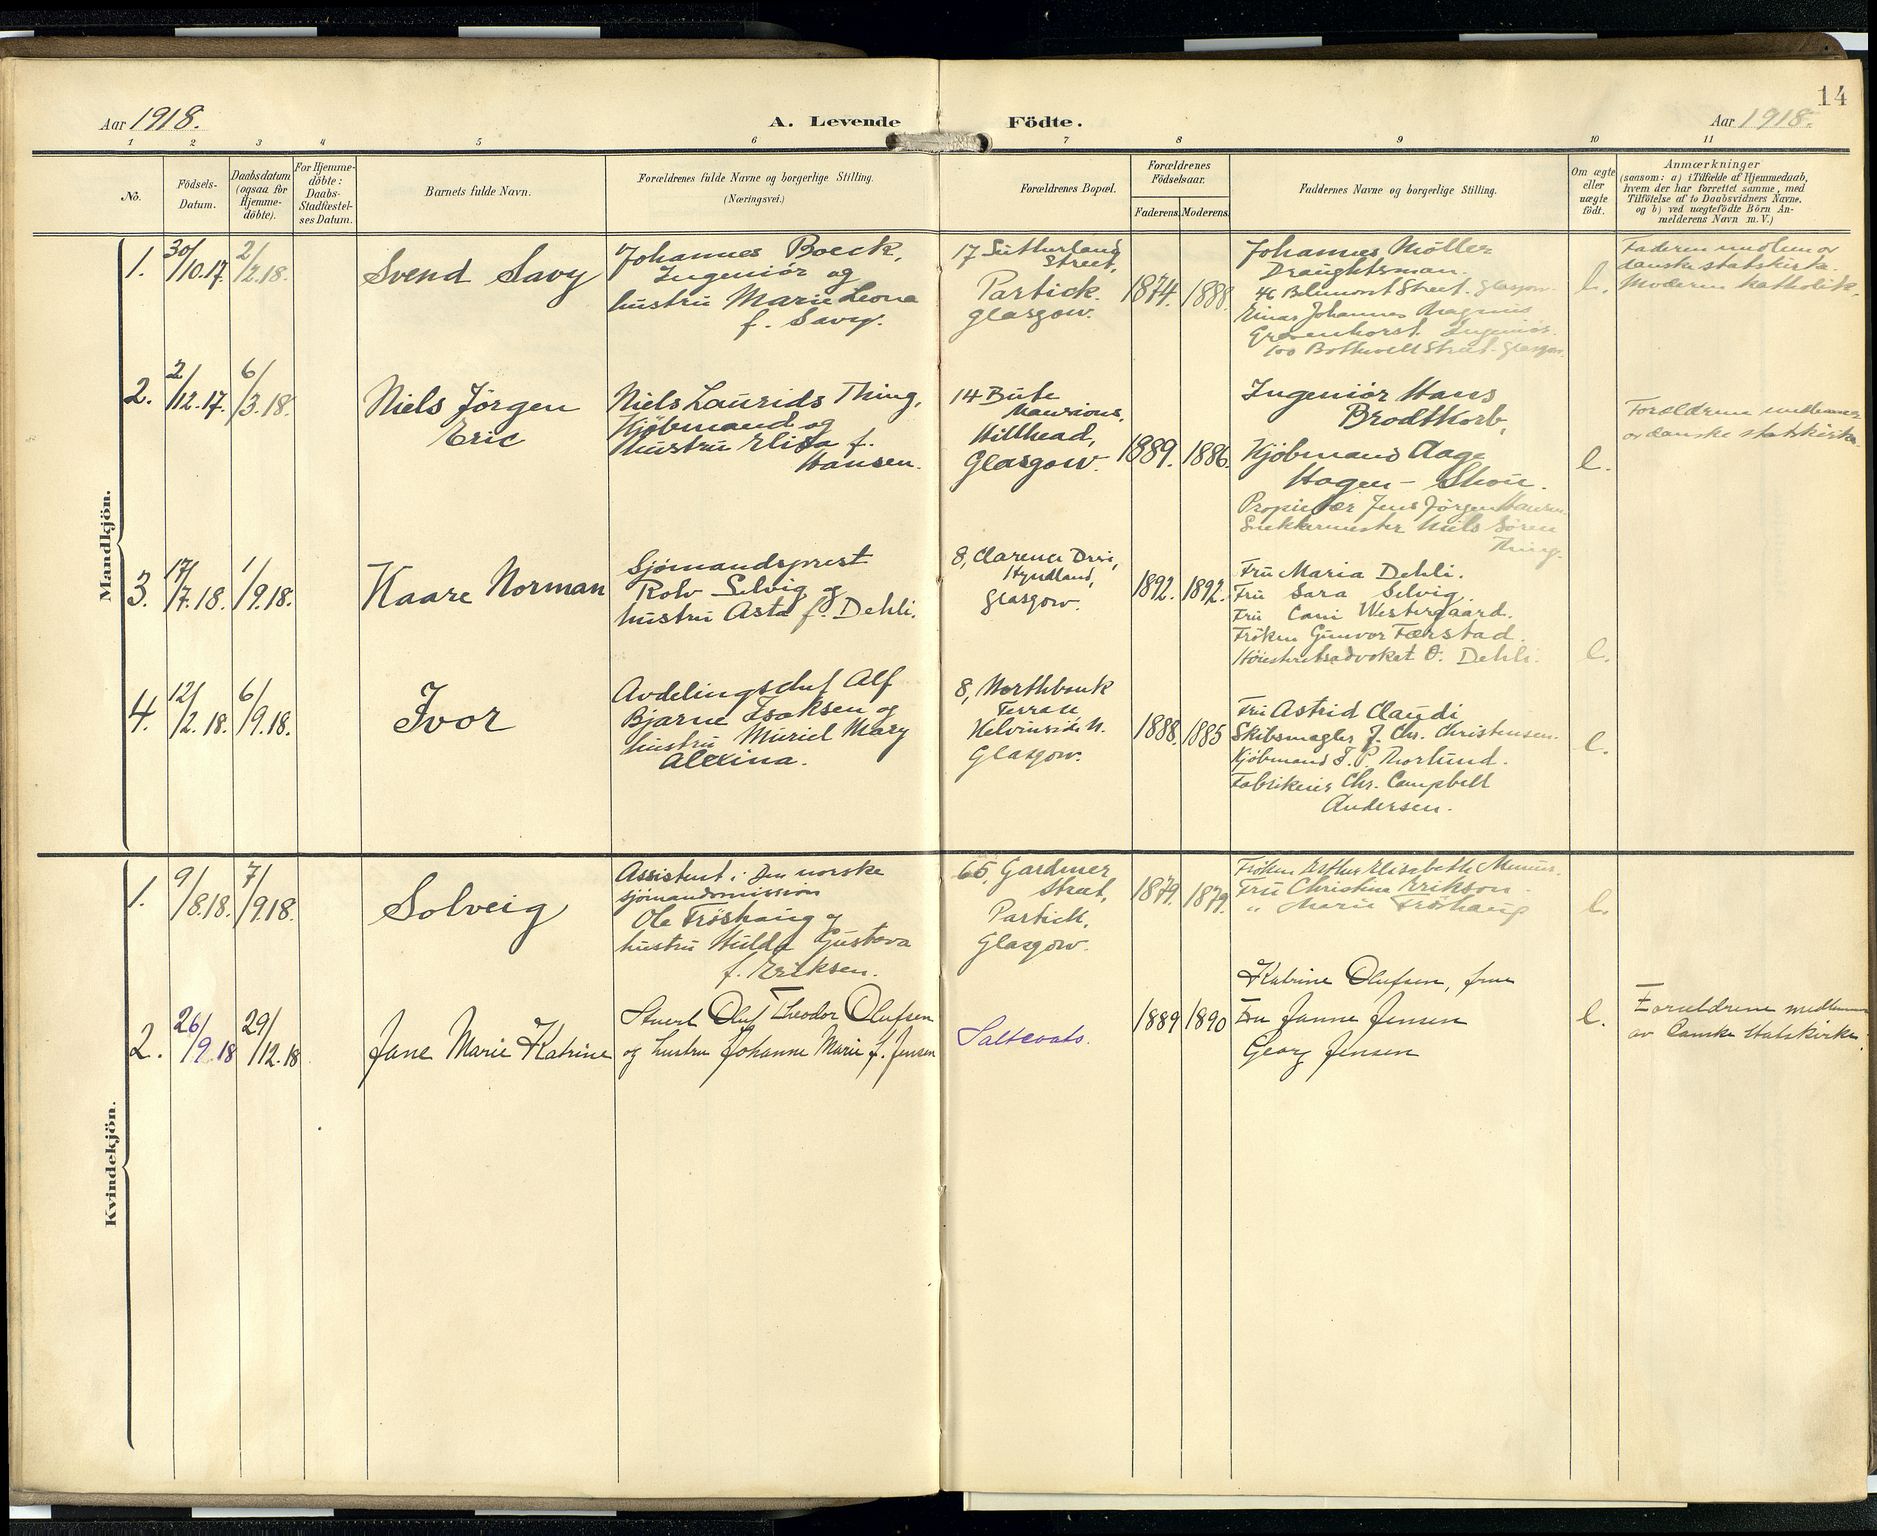 14
Aar 1918.
A. Levende Födte.
Aar 1918.
1 2 3 4 5 6 7 8 9 10 11
No.
Födsels-
Datum.
Daabsdatum
(ogsaa for
Hjemme-
döbte).
For Hjemme-
döbte:
Daabs-
Stadfæstel-
ses Datum.
Barnets fulde Navn.
Forældrenes fulde Navne og borgerlige Stilling.
(Næringsvei.)
Forældrenes Bopæl.
Forældrenes
Födselsaar.
Faderens. Moderens.
Faddernes Navne og borgerlige Stilling.
Om ægte
eller
uægte
födt.
Anmærkninger
(saasom: a) i Tilfælde af Hjemmedaab,
hvem der har forrettet samme, med
Tilföielse af to Daabsvidners Navne.
og b) ved uægtefödte Börn An-
melderens Navn m. V.)
Mandkjön.
1.
30/10.17.
2/2.18.
Svend Savy
Johannes Boeck,
Ingeniör og
hustru Marie Leona
f. Savy.
17 Sutherland
Street,
Partick.
Glasgow.
1874. 1888.
Johannes Møller
Draughtsman.
46 Belmont Street. Glasgow.
Einar Johannes Magnus
Gravenhorst. Ingeniör.
100 Bothwell Street. Glasgow.
Faderen medlem av
danske statskirke.
Moderen katholik.
2.
2/12.17.
6/3.18.
Niels Jörgen
Eric
Niels Laurids Thing,
Kjöbmand og
hustru Elisa f.
Hansen.
14 Bute
Mansions,
Hillhead,
Glasgow.
1889. 1886.
Ingeniör Hans
Brodtkorb,
Kjöbmand Aage
Hagen-Skou.
Propietær Jens Jörgen Hansen
Snekkermester Niels Sören
Thing.
e.
Forældrene medlemmer
av danske statskirke.
3.
17/7.18.
1/9.18.
Kaare Norman
Sjömandsprest
Rolv Selvig og
hustru Asta f. Dehli.
8, Clarence Drive,
Hyndland,
Glasgow.
1892. 1892.
Fru Maria Dehli.
Fru Sara Selvig.
Fru Westergaard.
Fröken Gunvor Færstad.
Höiesteretsadvokat O. Dehli.
e.
4.
12/2.18.
6/9.18.
Ivor
Avdelingschef Alf
Bjarne Isaksen og
hustru Muriel Mary
Alexina.
8, Northbank
Terrace
Kelvinside N.
Glasgow.
1888. 1885
Fru Astrid Claudi
Skibsmægler J. Chr. Christensen.
Kjöbmand F. P. Norlund.
Fabrikeier Chr. Campbell
Andersen.
e.
Kvindekjön.
1.
9/8.18.
7/9.18.
Solveig
Assistent i Den norske
sjömandsmission
Ole Fröshaug og
hustru Hulda Gustava
f. Eriksen.
65, Gardner
Street,
Partick,
Glasgow.
1879. 1879.
Fröken Esther Elisabeth
Fru Christine Erikson.
" Marie Fröshaug
e.
2.
26/9.18
29/12.18
Jane Marie Katrine
Stuert Oluf Theodor Olufsen
og hustru Johanne Marie f. Jensen
Saltcoats.
1889 1890
Katrine Olufsen, frue
Fru Janne Jensen
Georg Jensen
e.
Foreldrene medlemmer
av Danske Statskirke.